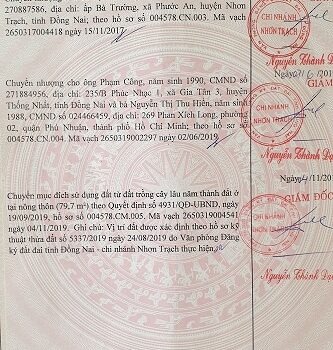 270887586, địa chỉ: ấp Bà Trường, xã Phước An, huyện Nhơn
Trạch, tỉnh Đồng Nai; theo hồ sơ số 004578.CN.003. Mã vạch
2650317004418 ngày 15/11/2017
CHI NHÁNH
NHƠN TRẠCH
Nguyễn Thành Đạt
Chuyển nhượng cho ông Phạm Công, năm sinh 1990, CMND số
271884956, địa chỉ: 235/B Phúc Nhạc 1, xã Gia Tân 3, huyện
Thống Nhất, tỉnh Đồng Nai và bà Nguyễn Thị Thu Hiền, năm sinh
1988, CMND số 024466459, địa chỉ: 269 Phan Xích Long, phường
02, quận Phú Nhuận, thành phố Hồ Chí Minh; theo hồ sơ số
004578.CN.004. Mã vạch 2650319002297 ngày 02/06/2019
GIÁM
CHI NHÁNH
NHƠN TRẠCH
Nguyễn Thành Đạt
Chuyển mục đích sử dụng đất từ đất trồng cây lâu năm thành đất ở
tại nông thôn (79,7 m²) theo Quyết định số 4931/QĐ-UBND, ngày
19/09/2019, hồ sơ số 004578.CM.005. Mã vạch 2650319004541
ngày 04/11/2019. Ghi chú: Vị trí đất được xác định theo hồ sơ kỹ
thuật thửa đất số 5337/2019 ngày 24/08/2019 do Văn phòng Đăng
ký đất đai tỉnh Đồng Nai - chi nhánh Nhơn Trạch thực hiện
GIÁM ĐỐC
CHI NHÁNH
NHƠN TRẠCH
Nguyễn Thành Đạt